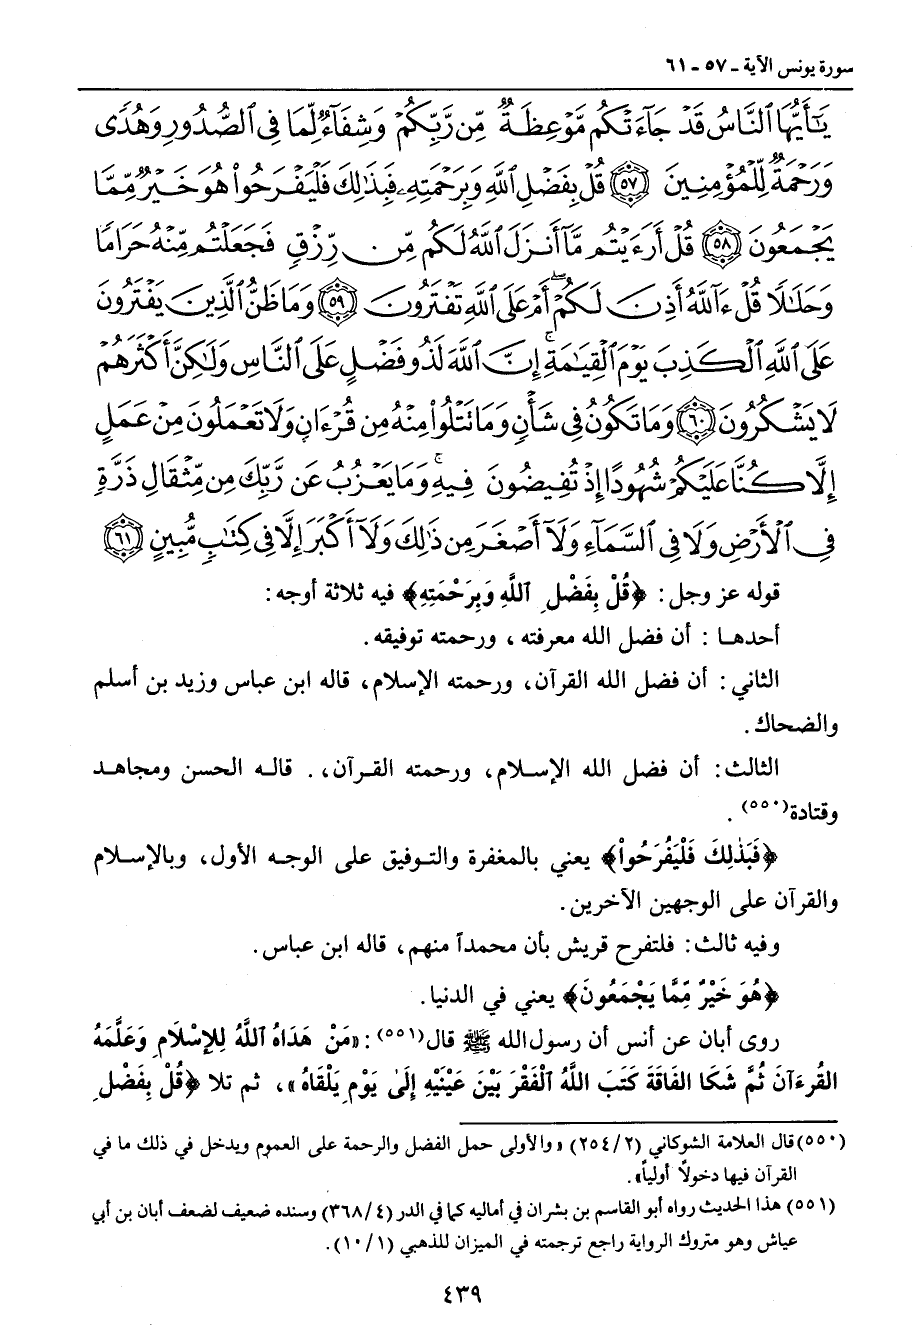 سورة يونس الآية - ٥٧ - ٦١
يَـٰٓأَيُّهَا ٱلنَّاسُ قَدْ جَآءَتْكُم مَّوْعِظَةٌ مِّن رَّبِّكُمْ وَشِفَآءٌ لِّمَا فِى ٱلصُّدُورِ وَهُدًى
وَرَحْمَةٌ لِّلْمُؤْمِنِينَ ٥٧ قُلْ بِفَضْلِ ٱللَّهِ وَبِرَحْمَتِهِۦ فَبِذَٰلِكَ فَلْيَفْرَحُوا۟ هُوَ خَيْرٌ مِّمَّا
يَجْمَعُونَ ٥٨ قُلْ أَرَءَيْتُم مَّآ أَنزَلَ ٱللَّهُ لَكُم مِّن رِّزْقٍ فَجَعَلْتُم مِّنْهُ حَرَامًا
وَحَلَـٰلًا قُلْ ءَآللَّهُ أَذِنَ لَكُمْ ۖ أَمْ عَلَى ٱللَّهِ تَفْتَرُونَ ٥٩ وَمَا ظَنُّ ٱلَّذِينَ يَفْتَرُونَ
عَلَى ٱللَّهِ ٱلْكَذِبَ يَوْمَ ٱلْقِيَـٰمَةِ ۗ إِنَّ ٱللَّهَ لَذُو فَضْلٍ عَلَى ٱلنَّاسِ وَلَـٰكِنَّ أَكْثَرَهُمْ
لَا يَشْكُرُونَ ٦٠ وَمَا تَكُونُ فِى شَأْنٍ وَمَا تَتْلُوا۟ مِنْهُ مِن قُرْءَانٍ وَلَا تَعْمَلُونَ مِنْ عَمَلٍ
إِلَّا كُنَّا عَلَيْكُمْ شُهُودًا إِذْ تُفِيضُونَ فِيهِ ۚ وَمَا يَعْزُبُ عَن رَّبِّكَ مِن مِّثْقَالِ ذَرَّةٍ
فِى ٱلْأَرْضِ وَلَا فِى ٱلسَّمَآءِ وَلَآ أَصْغَرَ مِن ذَٰلِكَ وَلَآ أَكْبَرَ إِلَّا فِى كِتَـٰبٍ مُّبِينٍ ٦١
قوله عز وجل: ﴿قُلْ بِفَضْلِ ٱللَّهِ وَبِرَحْمَتِهِ﴾ فيه ثلاثة أوجه:
أحدهـا : أن فضل الله معرفته ، ورحمته توفيقه.
الثاني: أن فضل الله القرآن، ورحمته الإسلام، قاله ابن عباس وزيد بن أسلم
والضحاك.
الثالث: أن فضل الله الإسـلام، ورحمته القـرآن،. قالـه الحسن ومجاهـد
وقتادة(٥٥٠) .
﴿فَبِذَٰلِكَ فَلْيَفْرَحُواْ﴾ يعني بالمغفرة والتـوفيق على الوجـه الأول، وبالإسـلام
والقرآن على الوجهين الآخرين.
وفيه ثالث: فلتفرح قريش بأن محمداً منهم، قاله ابن عباس.
﴿هُوَ خَيْرٌ مِّمَّا يَجْمَعُونَ﴾ يعني في الدنيا.
روى أبان عن أنس أن رسول الله ﷺ قال(٥٥١): «مَنْ هَدَاهُ ٱللَّهُ لِلإِسْلَامِ وَعَلَّمَهُ
القُرءَآنَ ثُمَّ شَكَا الفَاقَةَ كَتَبَ اللَّهُ ٱلْفَقْرَ بَيْنَ عَيْنَيْهِ إِلَىٰ يَوْمِ يَلْقَاهُ»، ثم تلا ﴿قُلْ بِفَضْلِ
(٥٥٠) قال العلامة الشوكاني (٢/ ٢٥٤) «والأولى حمل الفضل والرحمة على العموم ويدخل في ذلك ما في
القرآن فيها دخولاً أولياً».
(٥٥١) هذا الحديث رواه أبو القاسم بن بشران في أماليه كما في الدر (٤/ ٣٦٨) وسنده ضعيف لضعف أبان بن أبي
عياش وهو متروك الرواية راجع ترجمته في الميزان للذهبي (١/ ١٠).
٤٣٩